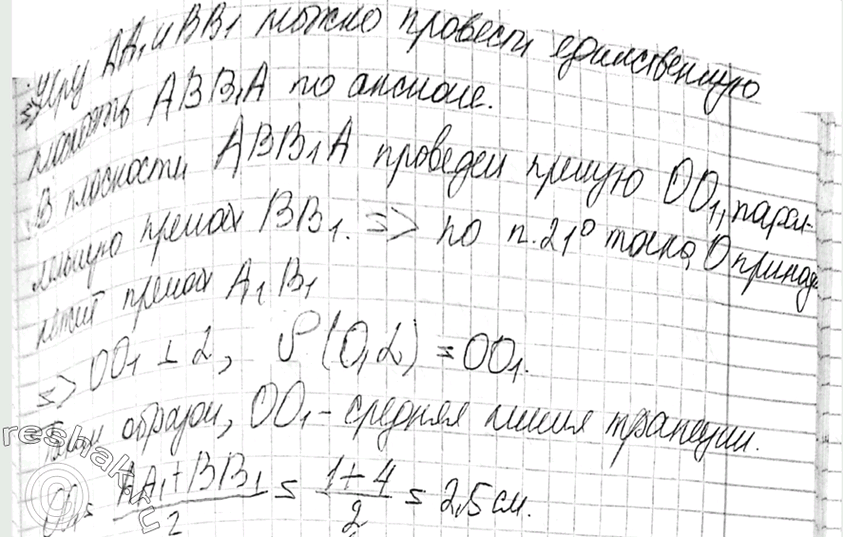 => Чрз AA₁ и BB₁ можно провести единственную
плоскость ABB₁A по аксиоме.
В плоскости ABB₁A проведем прямую OO₁, парал-
лельную прямой BB₁. => по п.21° точка O принад-
лежит прямой A₁B₁
=> OO₁ ⊥ α, ρ(O,α) = OO₁.
образом, OO₁ - средняя линия трапеции.
= (AA₁+BB₁)/2 = (1+4)/2 = 2,5 см.
reshak.ru